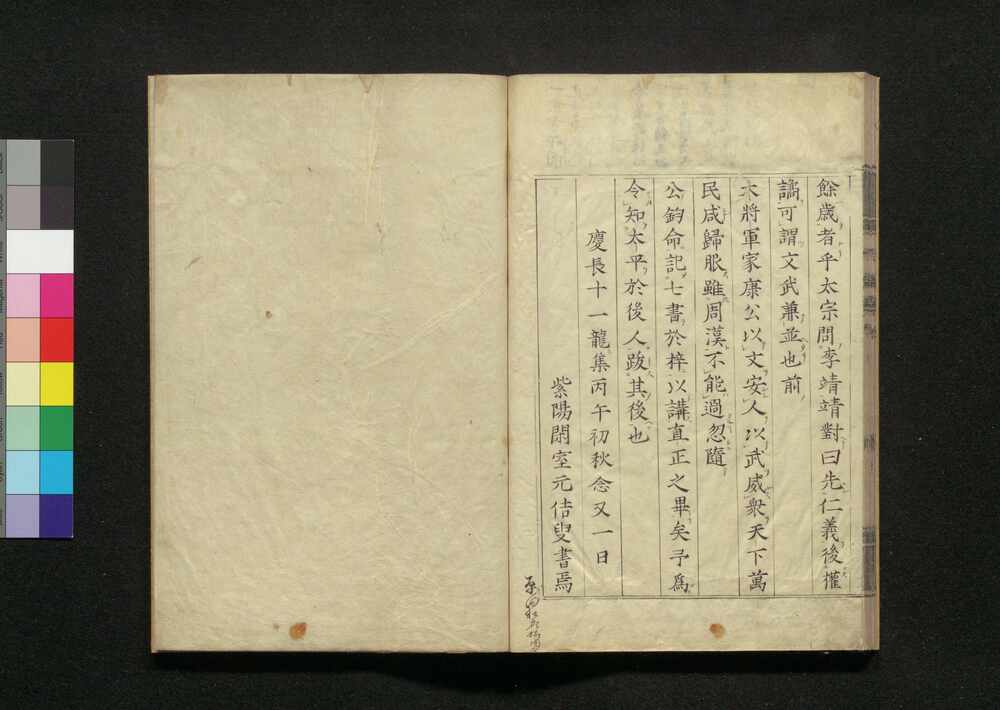 餘歳者乎太宗問李靖靖對曰先仁義後權
譎可謂文武兼並也前
大將軍家康公以文安人以武威衆天下萬
民咸歸服雖周漢不能過忽隨
公鈞命記七書於梓以講直正之畢矣予爲
令知太平於後人跋其後也
慶長十一龍集丙午初秋念又一日
紫陽閑室元佶叟書焉